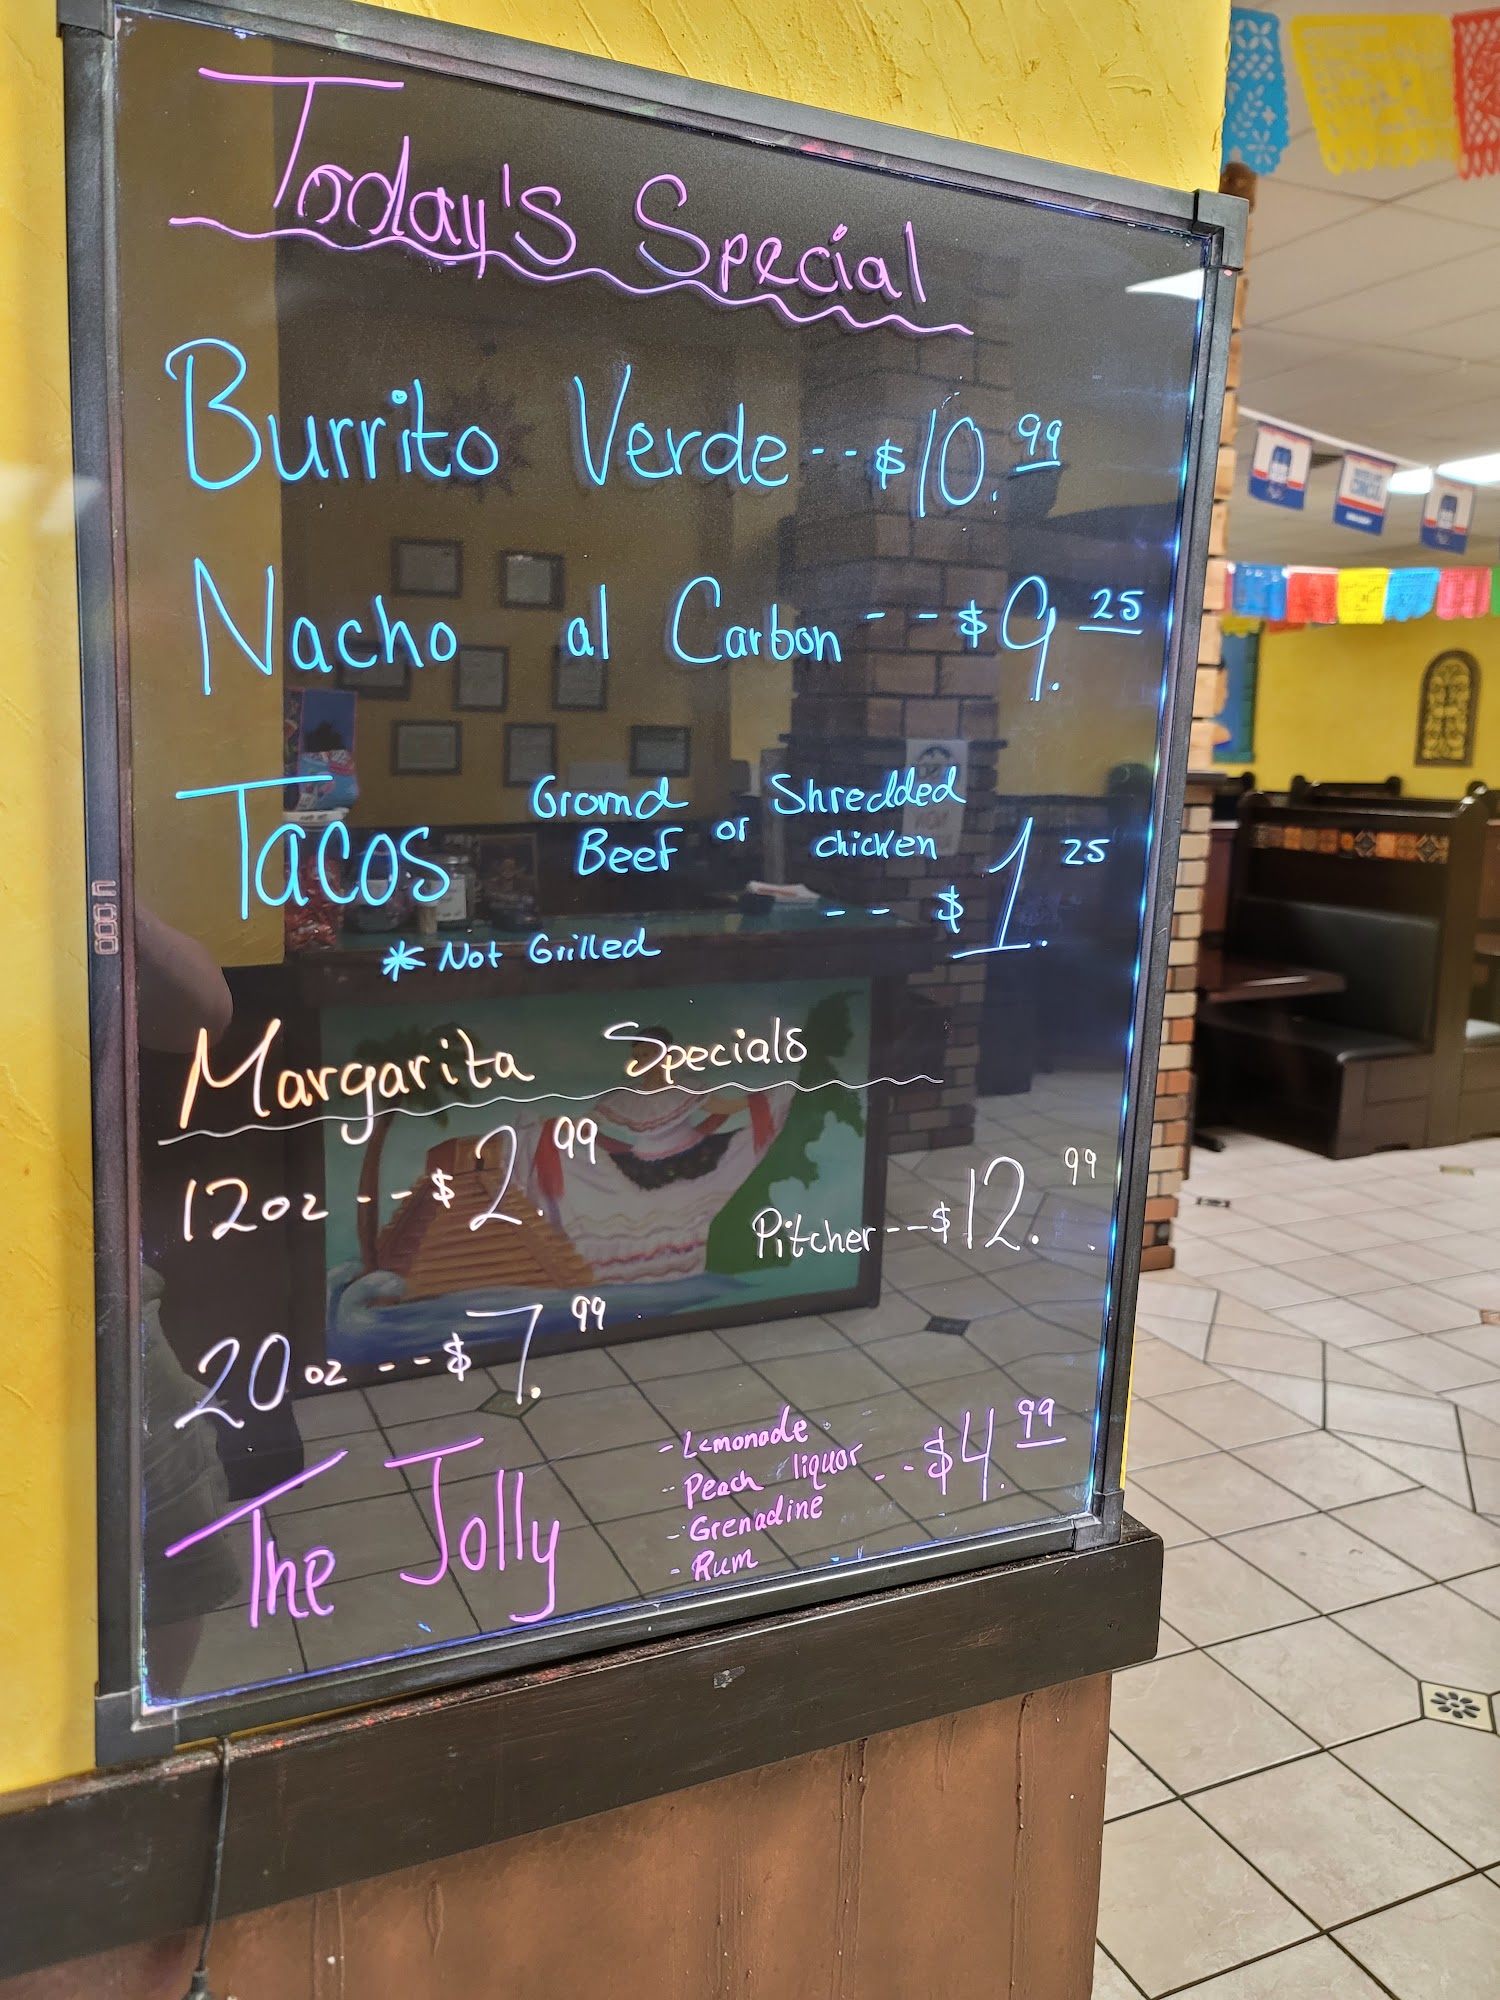 Today's Special
Burrito Verde -- $10.99
Nacho al Carbon -- $9.25
Tacos Ground Beef or Shredded chicken -- $1.25
* Not Grilled
Margarita Specials
12oz -- $2.99
Pitcher -- $12.99
20oz -- $7.99
The Jolly -- $4.99
- Lemonade
- Peach liquor
- Grenadine
- Rum